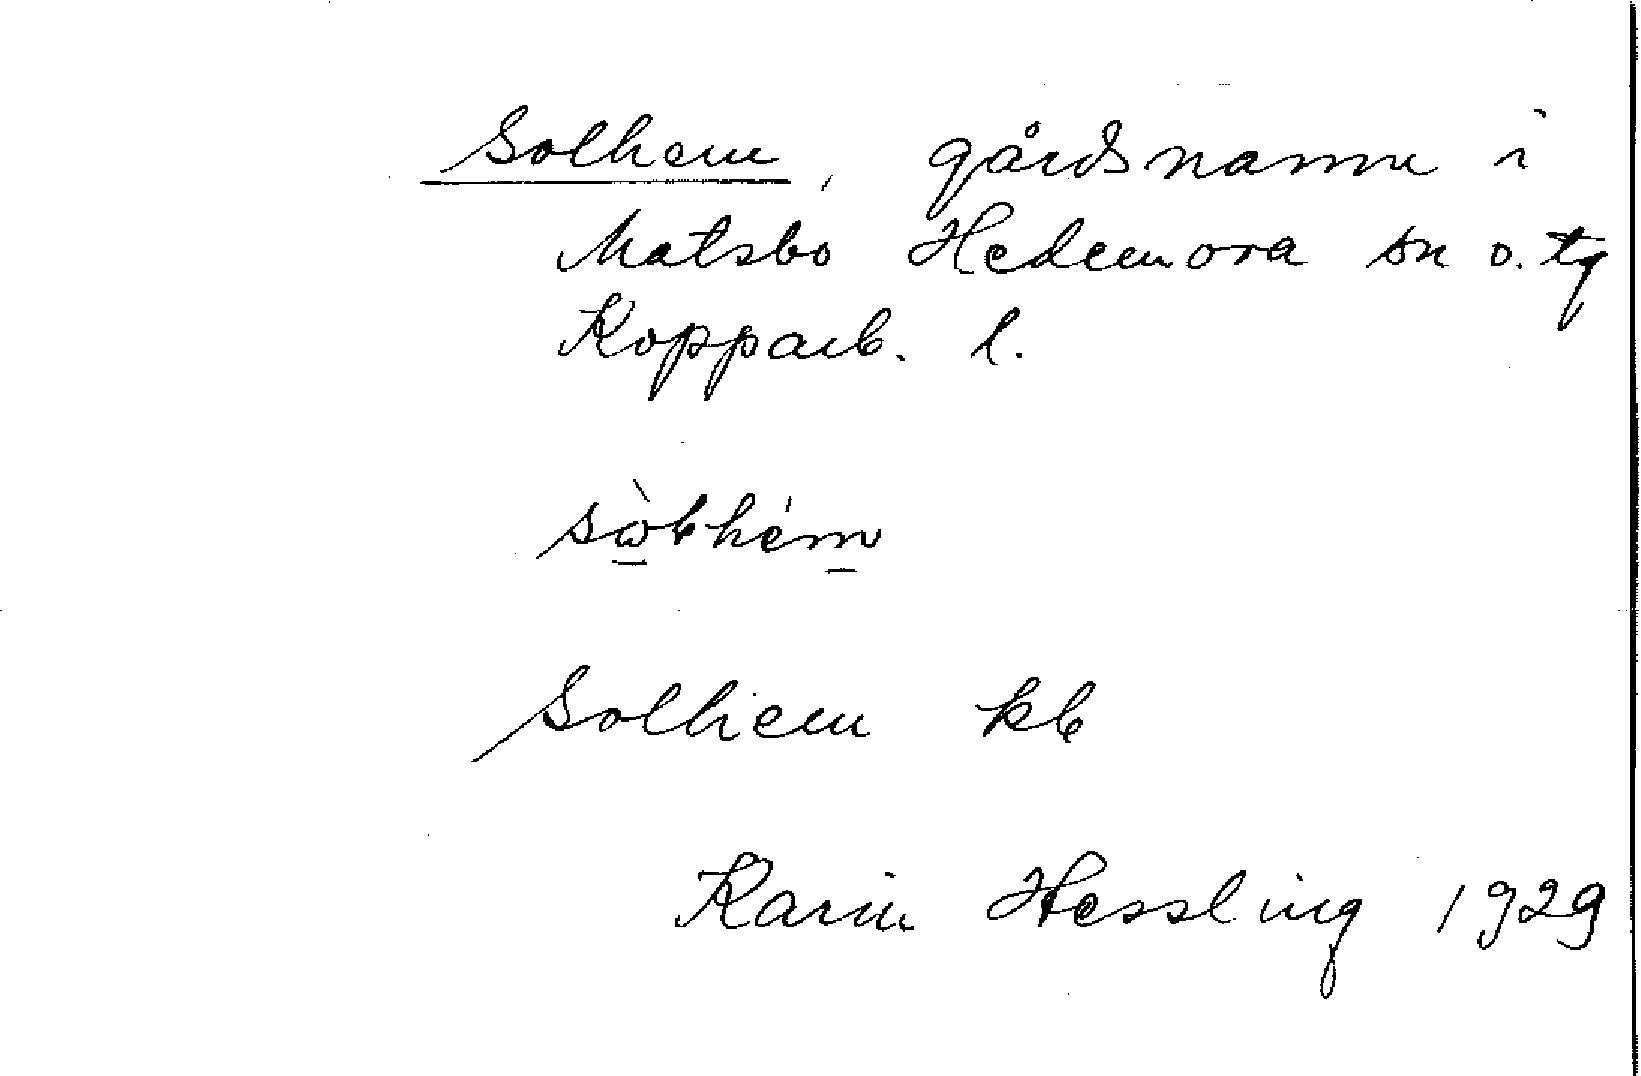 Solhem, gårdsnamn i
Matsbo Hedemora sn o. tg
Kopparb. l.
Solhem kb
Karin Hessling 1929